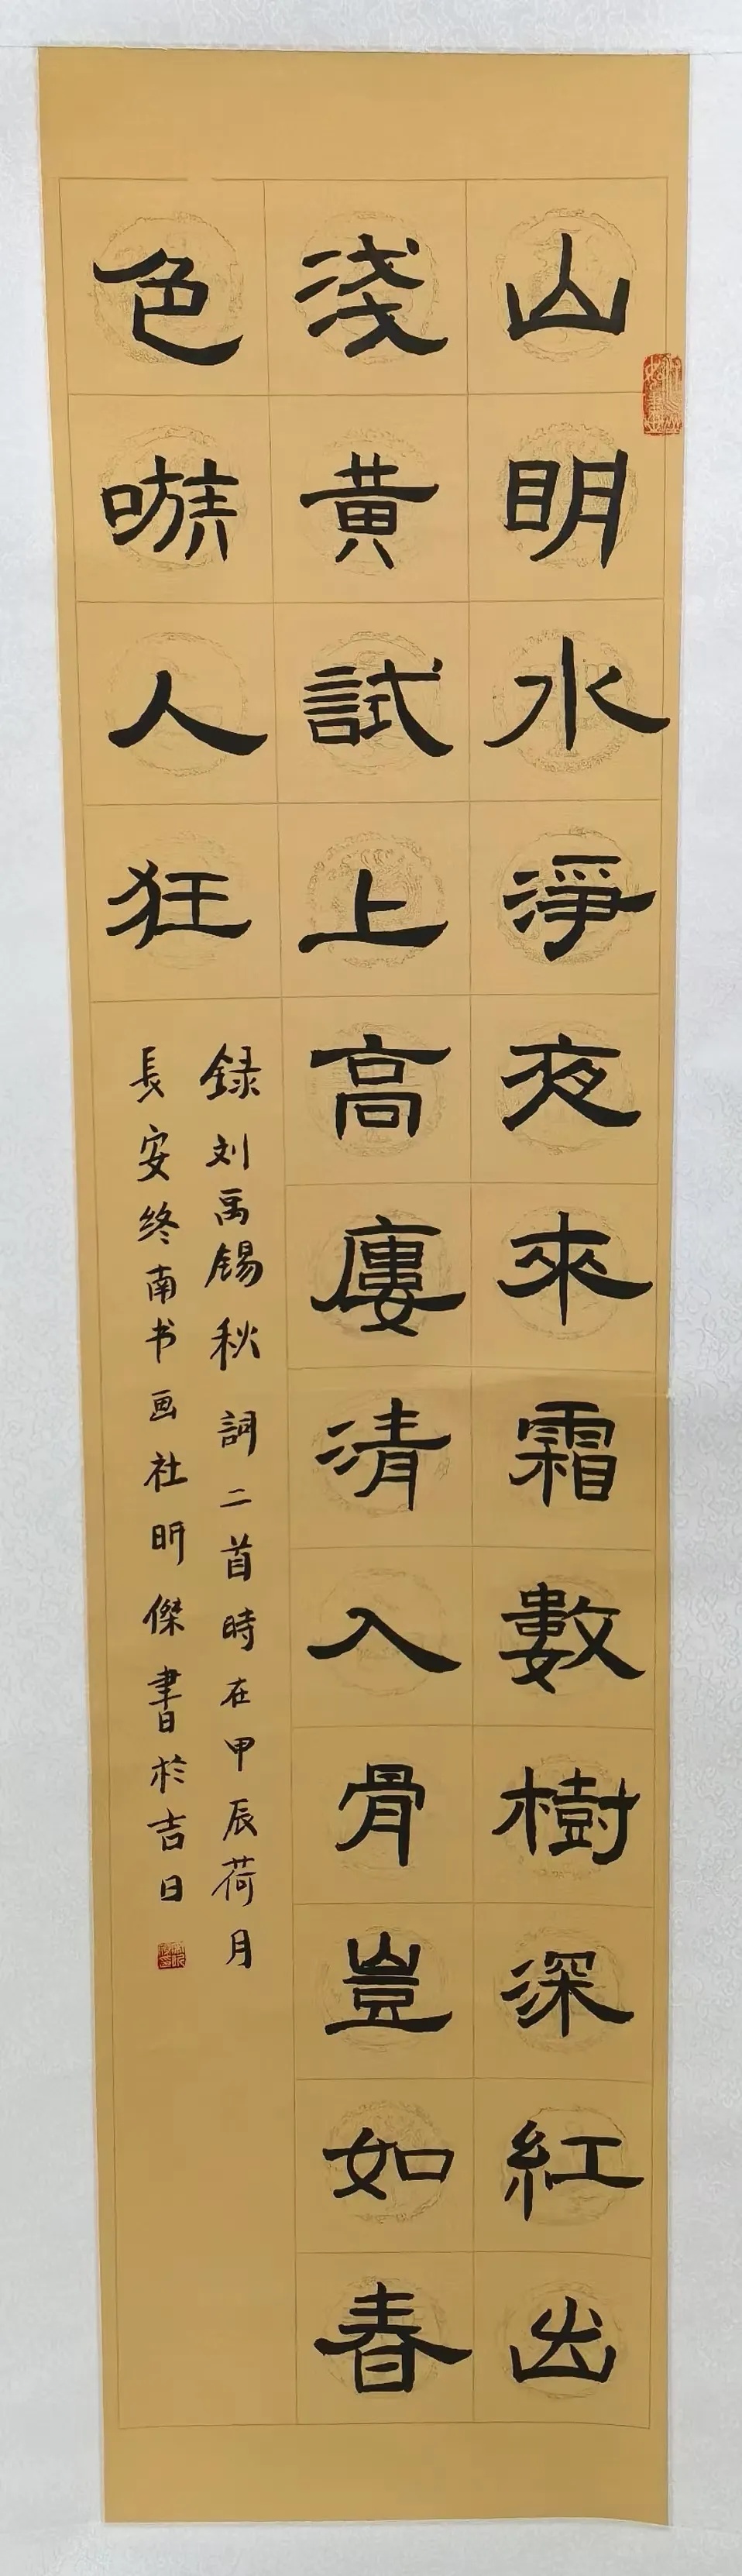 山明水淨夜來霜數樹深紅出
淺黃試上高廔清入骨豈如春
色嗾人狂
録刘禹锡秋詞二首時在甲辰荷月
長安终南书画社昕傑書於吉日